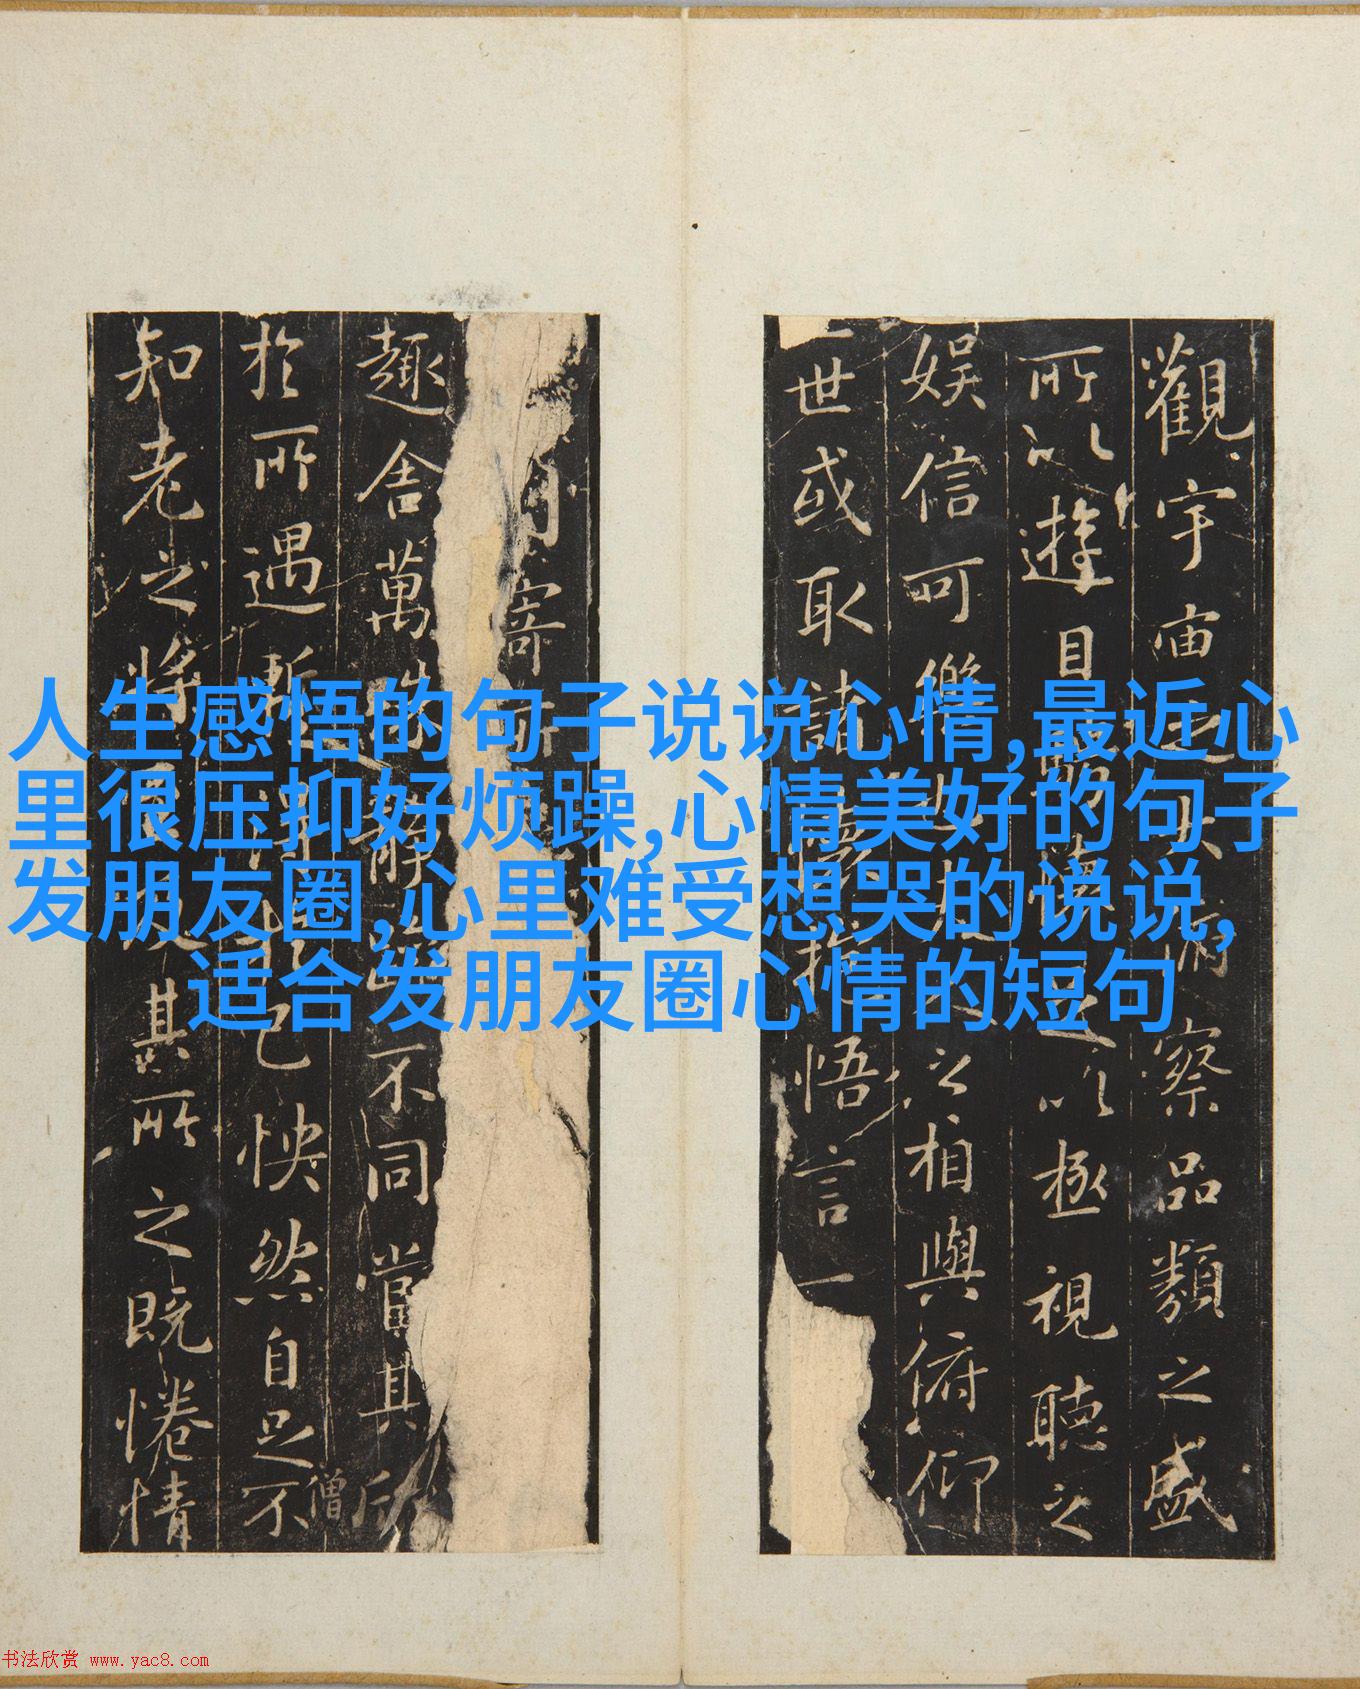 觀宇宙之大俯察品類之盛
所以遊目騁懷足以極視聽之
娛信可樂也夫人之相與俯仰
一世或取諸懷抱悟言一
寄所
趣舍萬殊靜躁不同當其欣
於所遇暫得於己怏然自足不
僧
知老之將至及其所之既惓情
人生感悟的句子说说心情,最近心
里很压抑好烦躁,心情美好的句子
发朋友圈,心里难受想哭的说说,
适合发朋友圈心情的短句
书法欣赏 www.yac8.com